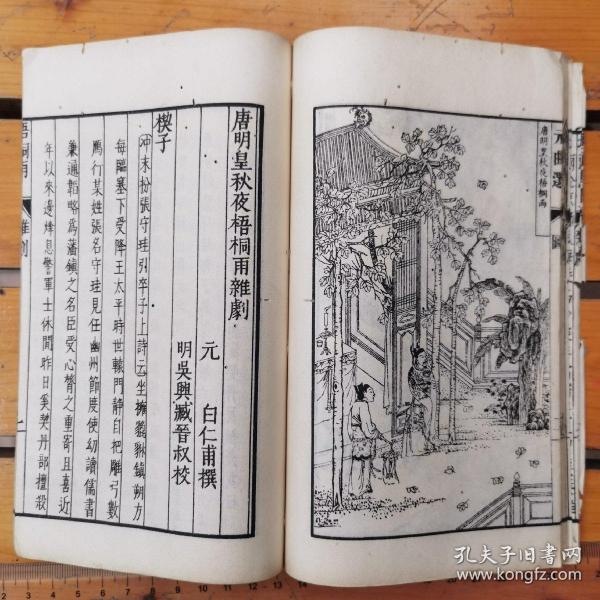 元曲選
圖
唐明皇秋夜梧桐雨
唐明皇秋夜梧桐雨雜劇
元 白仁甫撰
明吳興臧晉叔校
楔子
冲末扮張守珪引卒子上詩云坐擁貔貅鎮朔方
每臨塞下受降王太平時世轅門靜自把雕弓數
鴈行某姓張名守珪見任幽州節度使幼讀儒書
兼通韜略為藩鎮之名臣受心膂之重寄且喜近
年以來邊烽息警軍士休閒昨日奚契丹部擅殺
梧桐雨
雜劇
孔夫子旧书网
www.kongfz.com